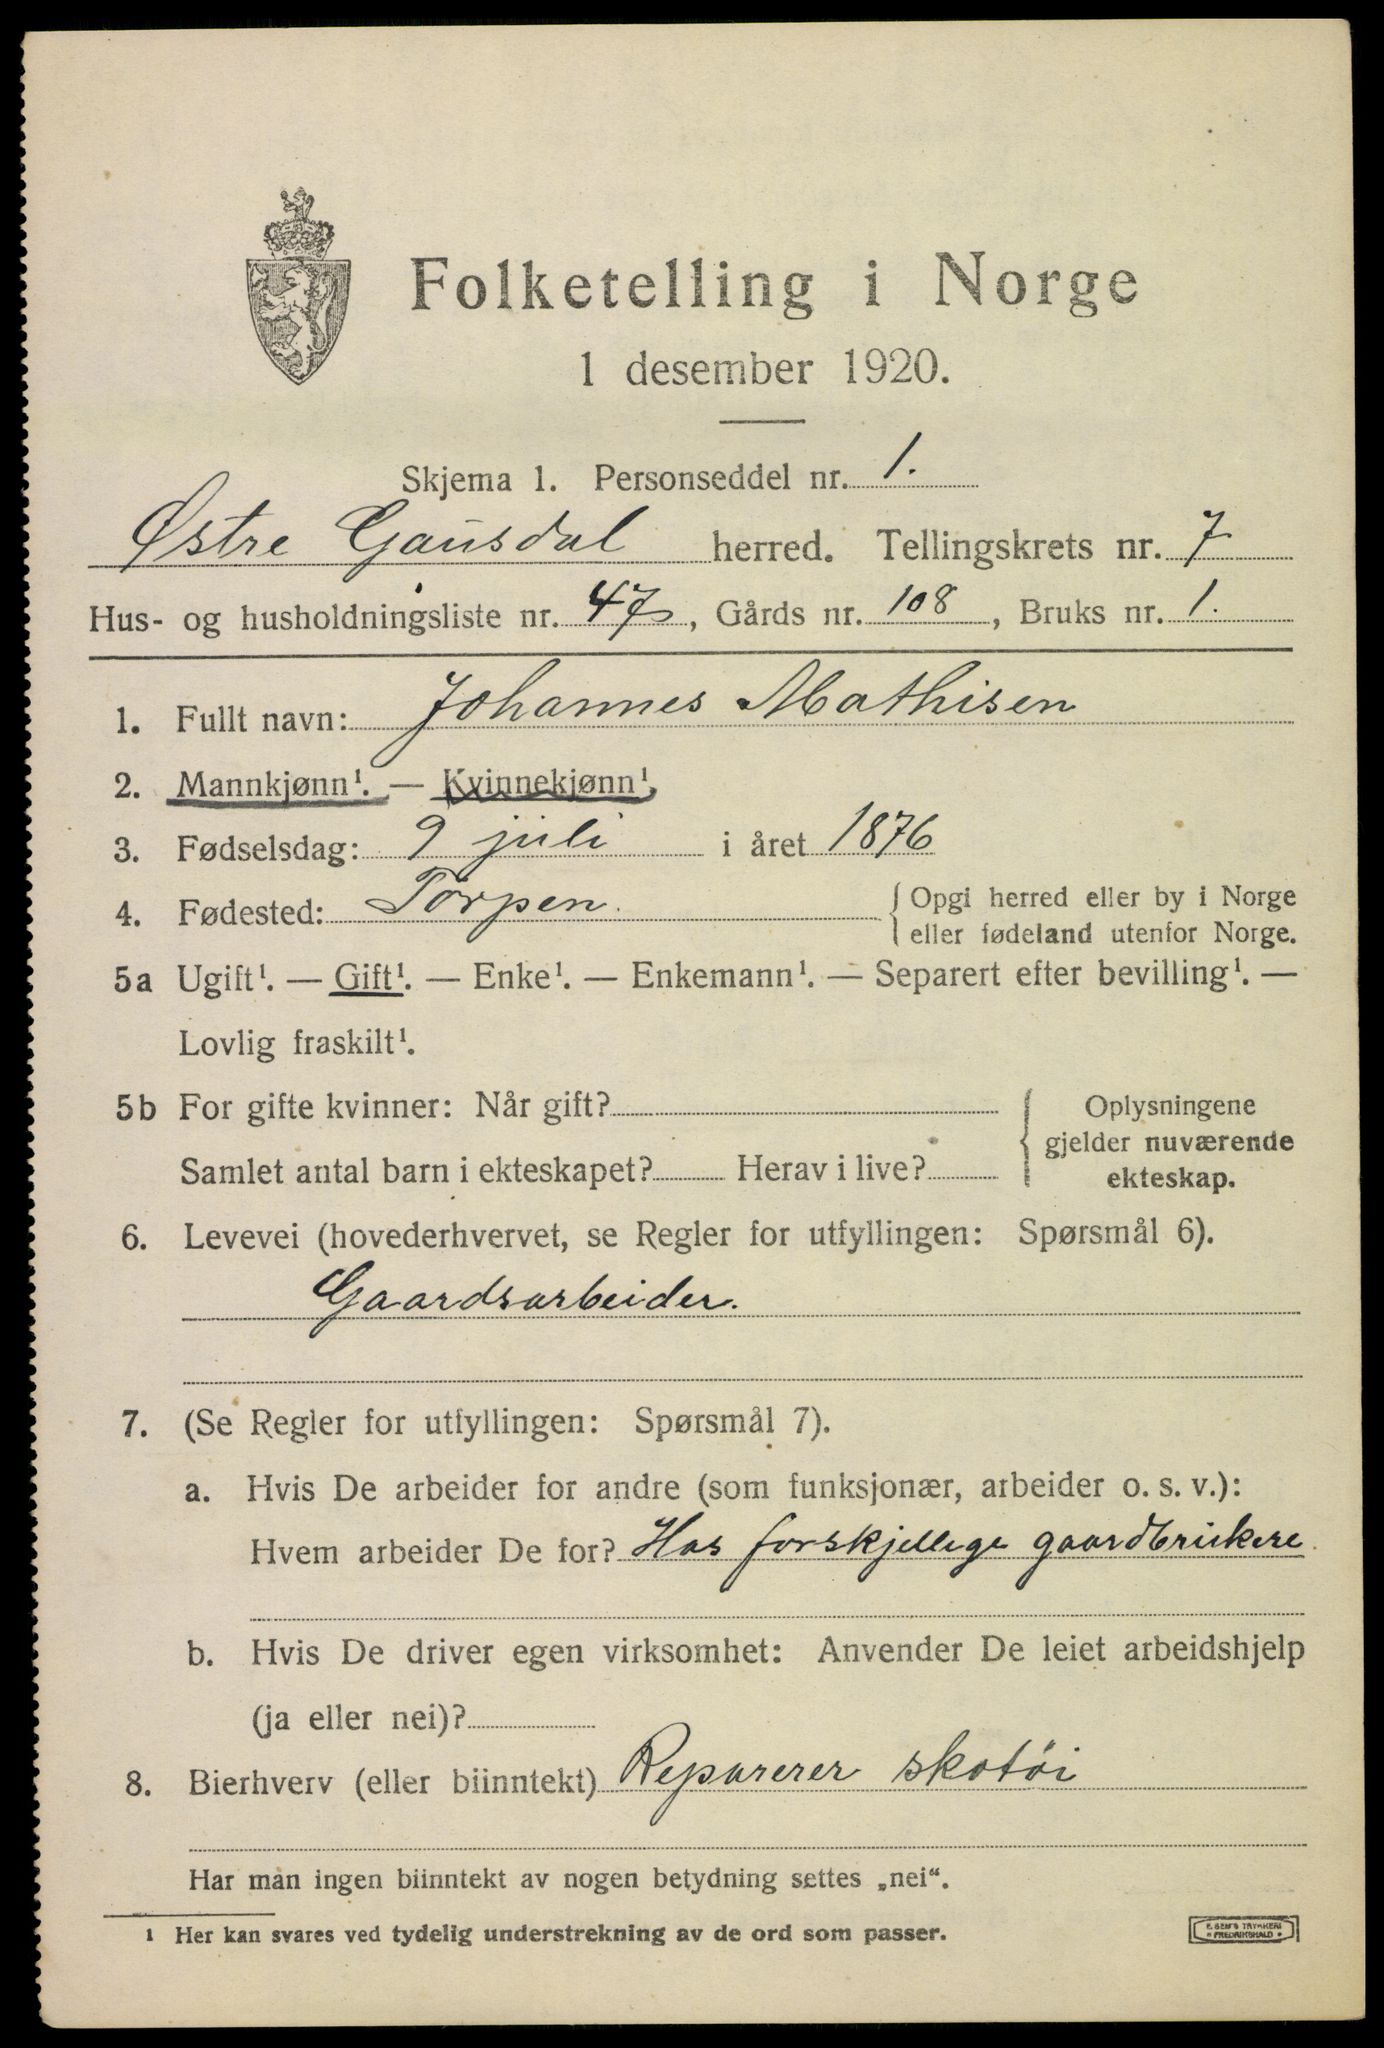 Folketelling i Norge
1 desember 1920.
Skjema 1. Personseddel nr. 1.
Østre Gausdal herred. Tellingskrets nr. 7
Hus- og husholdningsliste nr. 47, Gårds nr. 108, Bruks nr. 1.
1. Fullt navn: Johannes Mathisen
2. Mannkjønn¹. — Kvinnekjønn¹.
3. Fødselsdag: 9 juli i året 1876
4. Fødested: Torpen. { Opgi herred eller by i Norge
eller fødeland utenfor Norge.
5a Ugift¹. — Gift¹. — Enke¹. — Enkemann¹. — Separert efter bevilling¹. —
Lovlig fraskilt¹.
5b For gifte kvinner: Når gift? { Oplysningene
gjelder nuværende
Samlet antal barn i ekteskapet? Herav i live?
ekteskap.
6. Levevei (hovederhvervet, se Regler for utfyllingen: Spørsmål 6).
Gaardsarbeider.
7. (Se Regler for utfyllingen: Spørsmål 7).
a. Hvis De arbeider for andre (som funksjonær, arbeider o. s. v.):
Hvem arbeider De for? Hos forskjellige gaardbrukere
b. Hvis De driver egen virksomhet: Anvender De leiet arbeidshjelp
(ja eller nei)?
8. Bierhverv (eller biinntekt) Reparerer skotøi
Har man ingen biinntekt av nogen betydning settes „nei“.
¹ Her kan svares ved tydelig understrekning av de ord som passer.
E. SEM'S TRYKKERI
FREDRIKSHALD